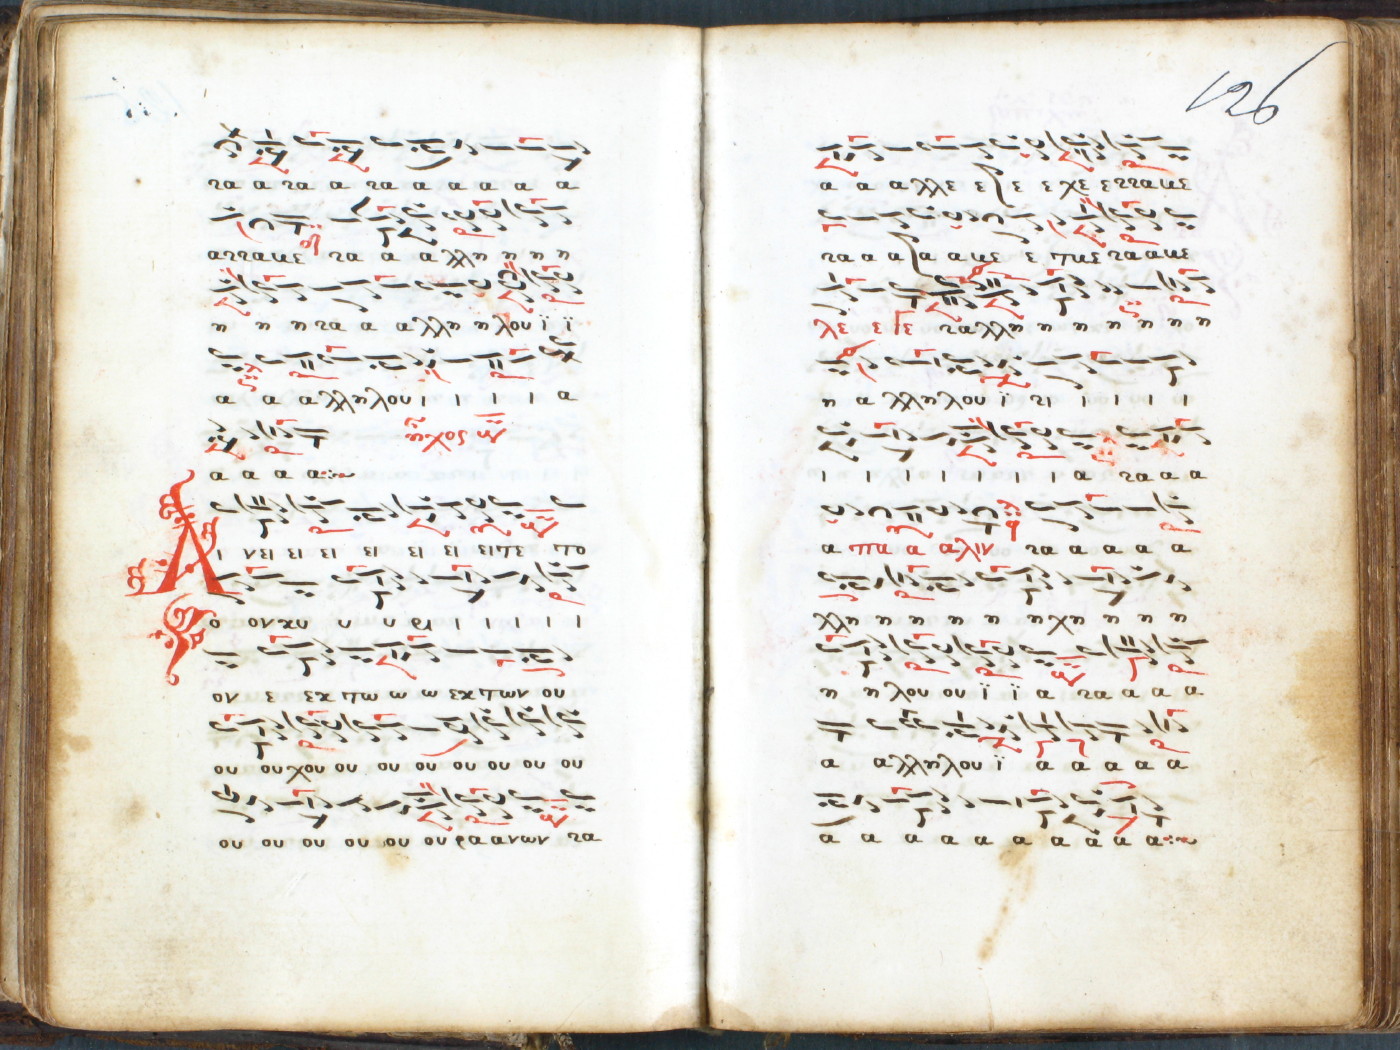 γα α γα α γα α α α α α
αγγαμε γα α α αλλη η η η
η η η γα α αλλη ηλου ϊ ϊ
α α αλληλου ι ι ι ι α
ἦχος
α α α α
Αι νει ει ει ει ει ει ειτε το
ο ονκυ υ υ ρι ι ι ι ι
ον ε εκ τω ω ω εκ των ου
ου ουχου ου ου ου ου ου ου
ου ου ου ου ου ου ρα ανων γα
126
α α αλλε ε ε ε χε εγγαμε
γα α α α α με ε τμε γα αμε
λε ε ε γαλλη η η η η η η
η α λληλου ϊ γι ι ι ι ι
ι ι ι ι ι ι ι α γα α α
α πα α αλιν γα α α α α
λλη η η η η ηχη η η η
η η λου ου ϊ ϊ α γα α α α
α αλληλου ϊ α α α α α
α α α α α α α α α α